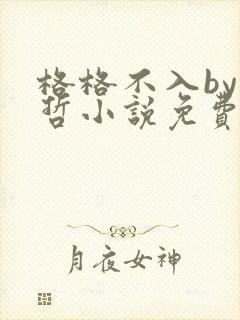 格格不入by
哲小說免費
月夜女神